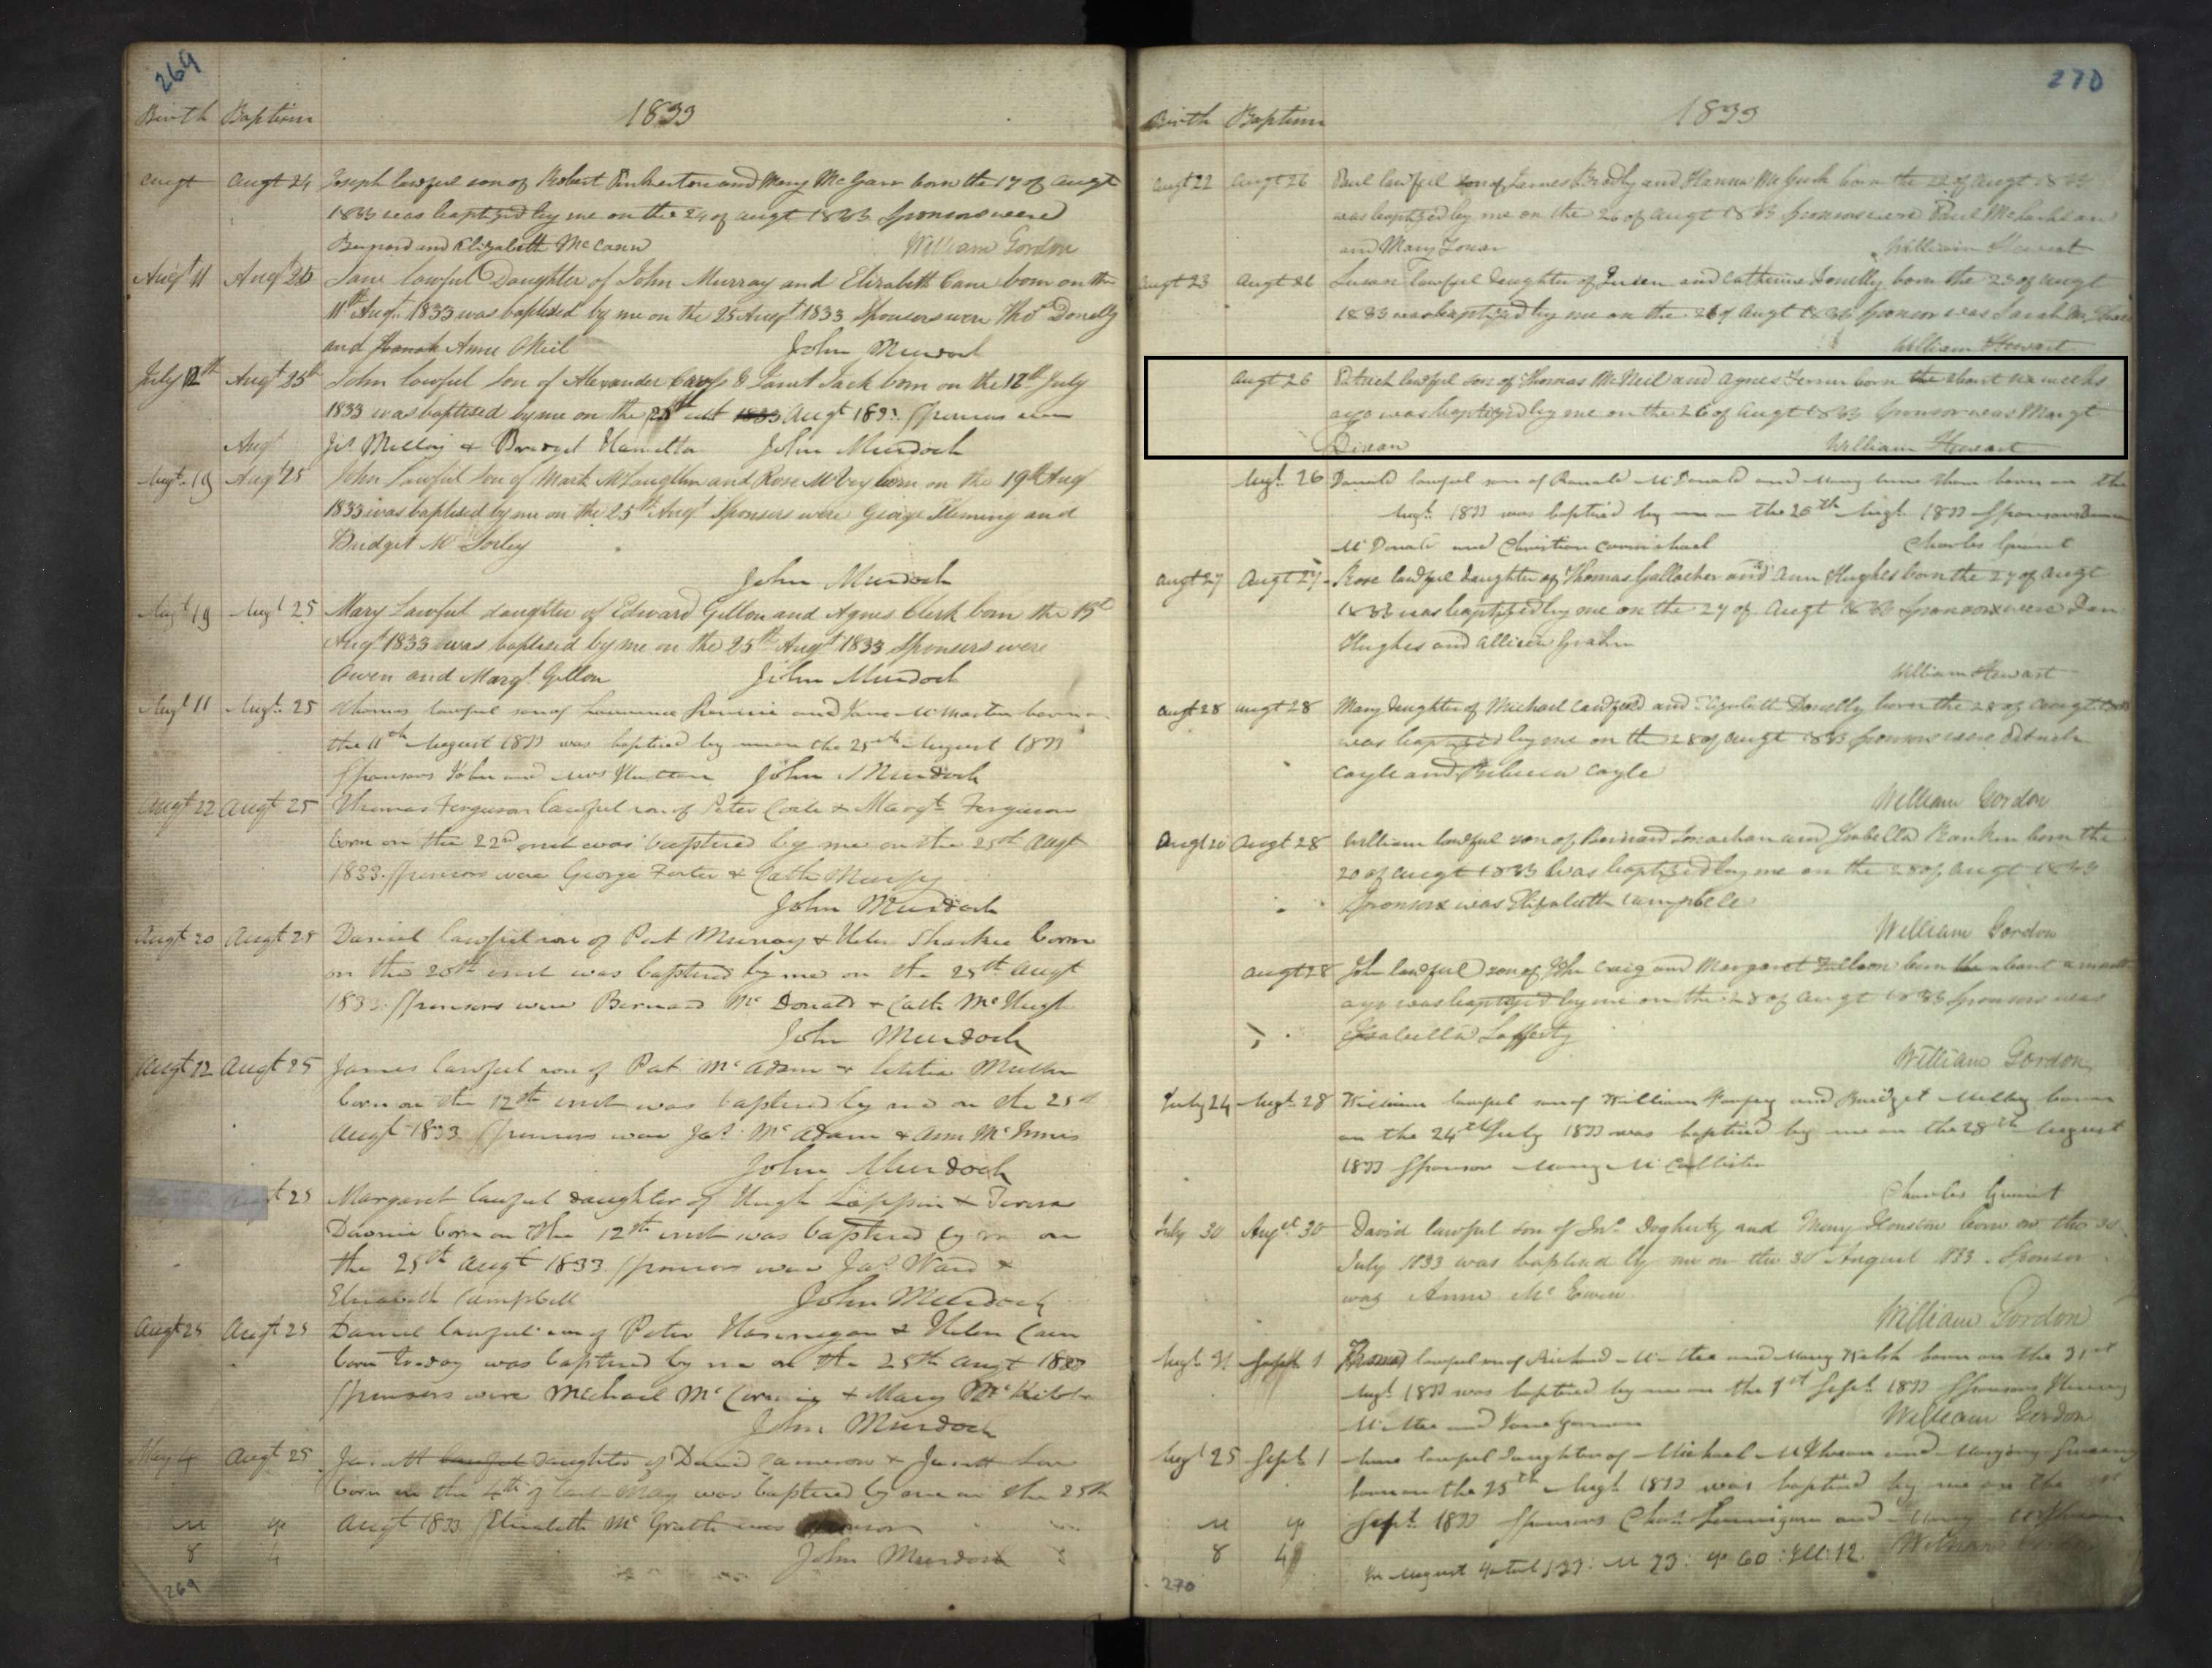 269
Birth Baptism 1833
Augt Augt 24 Joseph lawful son of Robert Pinkerton and Mary McGarr born the 17 of Augt
1833 was baptized by me on the 24 of augt 1833 Sponsors were
Bernard and Elizabeth McCann William Gordon
Augt 11 Augt 25 Jane lawful Daughter of John Murray and Elizabeth Cane born on the
11th Augt. 1833 was baptised by me on the 25 Augt 1833 Sponsors were Thos Donelly
and Hanah Anne ONeil John Murdoch
July 12th Augt 25th John lawful Son of Alexander & Janet Jack born on the 12th July
1833 was baptised by me on the 25th 1833 Augt 1833 Sponsors were
Augt Js. Melloy & Bridget Hamilton John Murdoch
Augt 19 Augt 25 John Lawful Son of Mark McLaughlin and Rose McVey born on the 19th Aug
1833 was baptised by me on the 25th Augt. Sponsors were George Fleming and
Bridget McSorley
John Murdoch
Augt 19 Augt 25 Mary Lawful daughter of Edward Gillon and Agnes Clerk born the 19th
Augt 1833 was baptised by me on the 25th Augt 1833 Sponsors were
Owen and Margt. Gillon John Murdoch
Augt 11 Augt. 25 Thomas lawful son of Lawrence Rennie and Jane McMartin born on
the 11th August 1833 was baptised by me on the 25th August 1833
Sponsors John and Mrs Hutton John Murdoch
Augt 22 Augt 25 Thomas Ferguson lawful son of Peter Coile & Margt. Ferguson
born on the 22nd inst was baptised by me on the 25th Augt
1833. Sponsors were George Foster & Cath Murphy
John Murdoch
Augt 20 Augt 25 Daniel lawful son of Pat Murray & Helen Sharkie born
on the 20th inst was baptised by me on the 25th Augt
1833. Sponsors were Bernard McDonald & Cath McHugh
John Murdoch
Augt 12 Augt 25 James lawful son of Pat McAdam & Letitia Mullan
born on the 12th inst was baptised by me on the 25th
Augt 1833 Sponsors were Jas. McAdam & Ann McInnes
John Murdoch
Augt 25 Margaret lawful daughter of Hugh Lappin & Teresa
Downie born on the 12th inst was baptised by me on
the 25th Augt 1833 Sponsors were Jas. Ward &
Elizabeth Campbell John Murdoch
Augt 25 Augt 25 Daniel lawful son of Peter & Helen Cain
born today was baptised by me on the 25th Augt 1833
Sponsors were Michael McCormic & Mary McKibbin
John Murdoch
May 4 Augt 25 Janett lawful daughter of David Cameron & Janett
born on the 4th of last May was baptised by me on the 25th
Augt 1833 Elizabeth McGrath was sponsor
8 4 John Murdoch
269
270
Birth Baptism 1833
Augt 22 Augt 26 Paul lawful son of James Bradly and Hanna McGurk born the 22 of Augt 1833
was baptized by me on the 26 of Augt 1833 Sponsors were Paul McLachlan
and Mary William Stewart
Augt 23 Augt 26 Susan lawful daughter of and Catherine Donelly born the 23 of augt
1833 was baptized by me on the 26 of Augt 1833 Sponsor was Sarah
William Stewart
Augt 26 Patrick lawful son of Thomas McNeil and Agnes born the about six weeks
ago was baptized by me on the 26 of Augt 1833 Sponsor was Margt
Divan William Stewart
Augt. 26 Donald lawful son of Ranald McDonald and Mary born on the
Augt. 1833 was baptised by me on the 26th Augt. 1833 Sponsors
McDonald and Christian Carmichael Charles Grant
Augt 27 Augt 27 Rose lawful daughter of Thomas Gallacher and Ann Hughes born the 27 of Augt
1833 was baptized by me on the 27 of Augt 1833 Sponsors were Dan
Hughes and Allison Graham
William Stewart
Augt 28 Augt 28 Mary daughter of Michael Caulfield and Elizabeth Donelly born the 28 of Augt 1833
was baptized by me on the 28 of Augt 1833 Sponsors were Patrick
Coyle and Rebecca Coyle
William Gordon
Augt 20 Augt 28 William lawful son of Bernard Monachan and Isabella Rankin born the
20 of Augt 1833 was baptized by me on the 28 of Augt 1833
Sponsors was Elizabeth Campbell
William Gordon
Augt 28 John lawful son of John Craig and Margaret born the about a month
ago was baptized by me on the 28 of Augt 1833 Sponsors was
Isabella Lafferty
William Gordon
July 24 Augt. 28 William lawful son of William and Bridget Melloy born
on the 24th July 1833 was baptised by me on the 28th August
1833 Sponsor Mary McCallister
Charles Grant
July 30 Augst 30 David lawful son of Jno. Dogherty and Mary Houston born on the 30
July 1833 was baptised by me on the 30 August 1833. Sponsor
was Anne McEwin
William Gordon
Augt. 31 Septr 1 Thomas lawful son of Richard McAtee and Mary Welsh born on the 31st
Augt. 1833 was baptised by me on the 1st Septr. 1833 Sponsors
McAtee and Jane Gorman William Gordon
Augt 25 Septr 1 Anne lawful daughter of Michael and
born on the 25th Augt. 1833 was baptised by me on the 1st
Septr. 1833 Sponsors Chas. and Mary
8 4 In August Total 133: M 73: F 60: Ill: 12. William Gordon
270